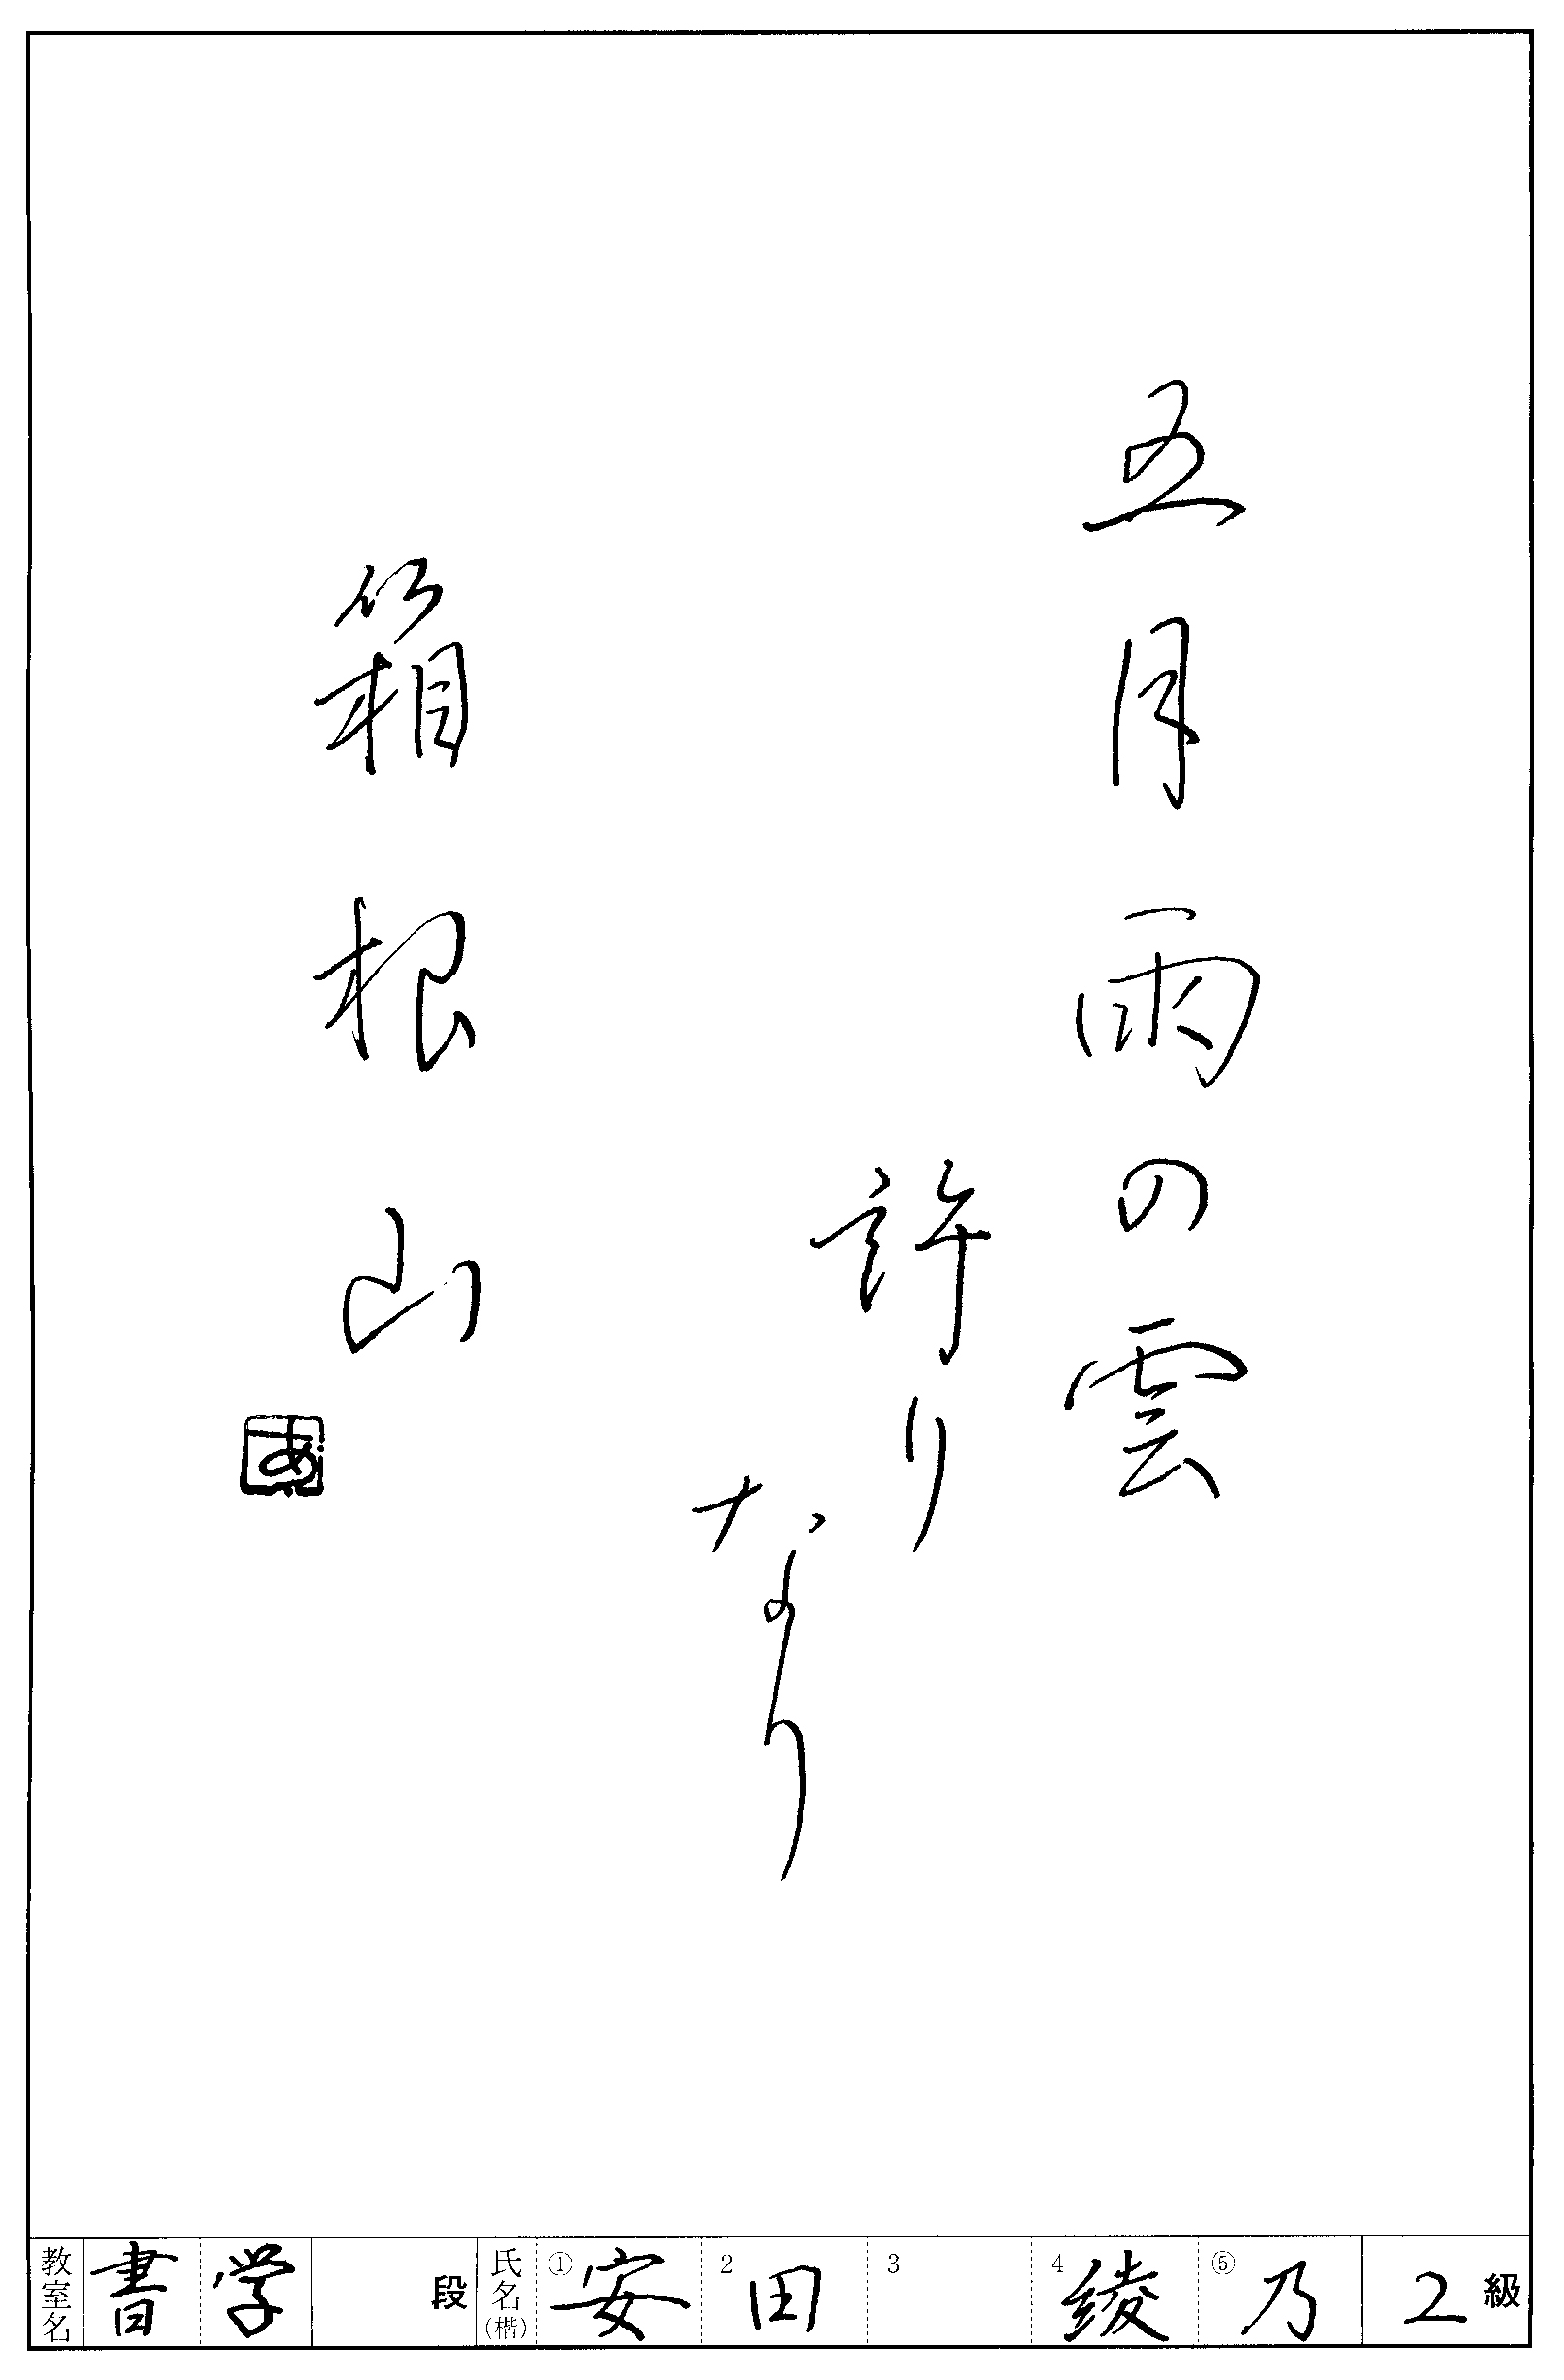 五月雨の雲
許り
なり
箱根山
あ
教室名 書学 段 氏名(楷) ①安 2田 3 4綾 ⑤乃 2級